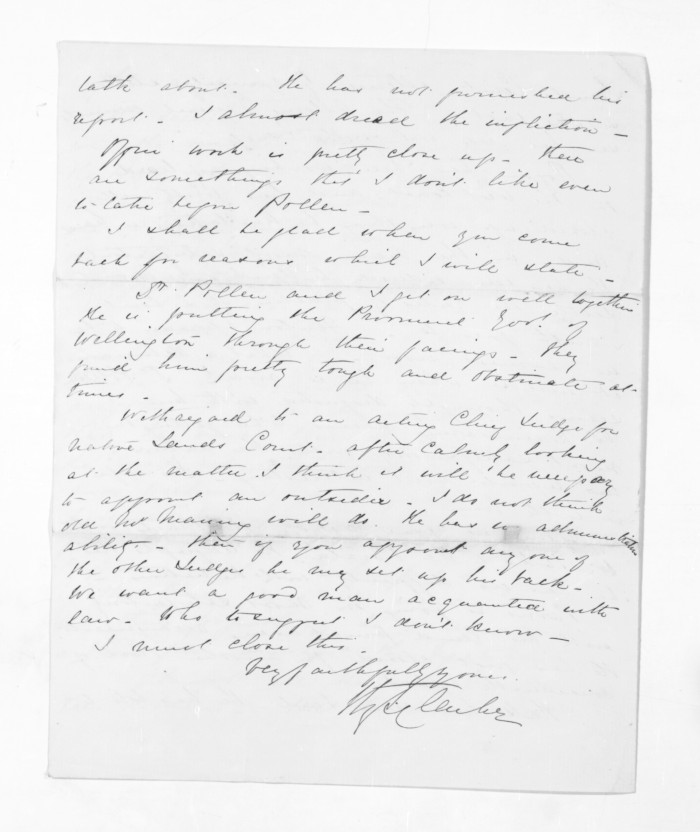 talk about. He has not furnished his
report. I almost dread the infliction –
Office work is pretty close up – there
are some things that I don't like even
to take before Pollen –
I shall be glad when you come
back for reasons which I will state –
Dr. Pollen and I get on well together
He is putting the Provincial Govt. of
Wellington through their facings – They
find him pretty tough and obstinate at
times.
With regard to an acting Chief Judge for
Native Lands Court – after calmly looking
at the matter I think it will be necessary
to appoint an outsider – I do not think
old Mr Maning will do. He has no administrative
ability – then if you appoint any one of
the other Judges he may set up his back –
We want a good man acquainted with
law – Who to suggest I don't know –
I must close this.
Very faithfully yours.
Clarke